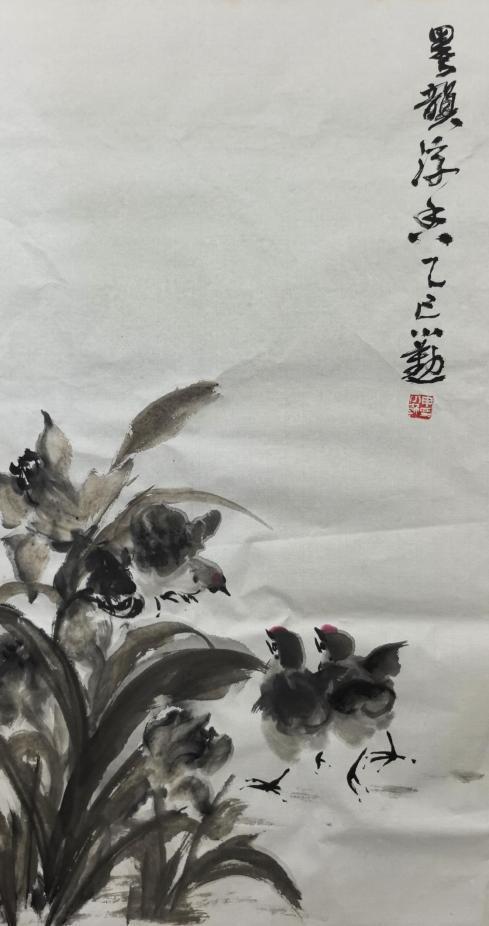 墨韻浮香乙巳小勤